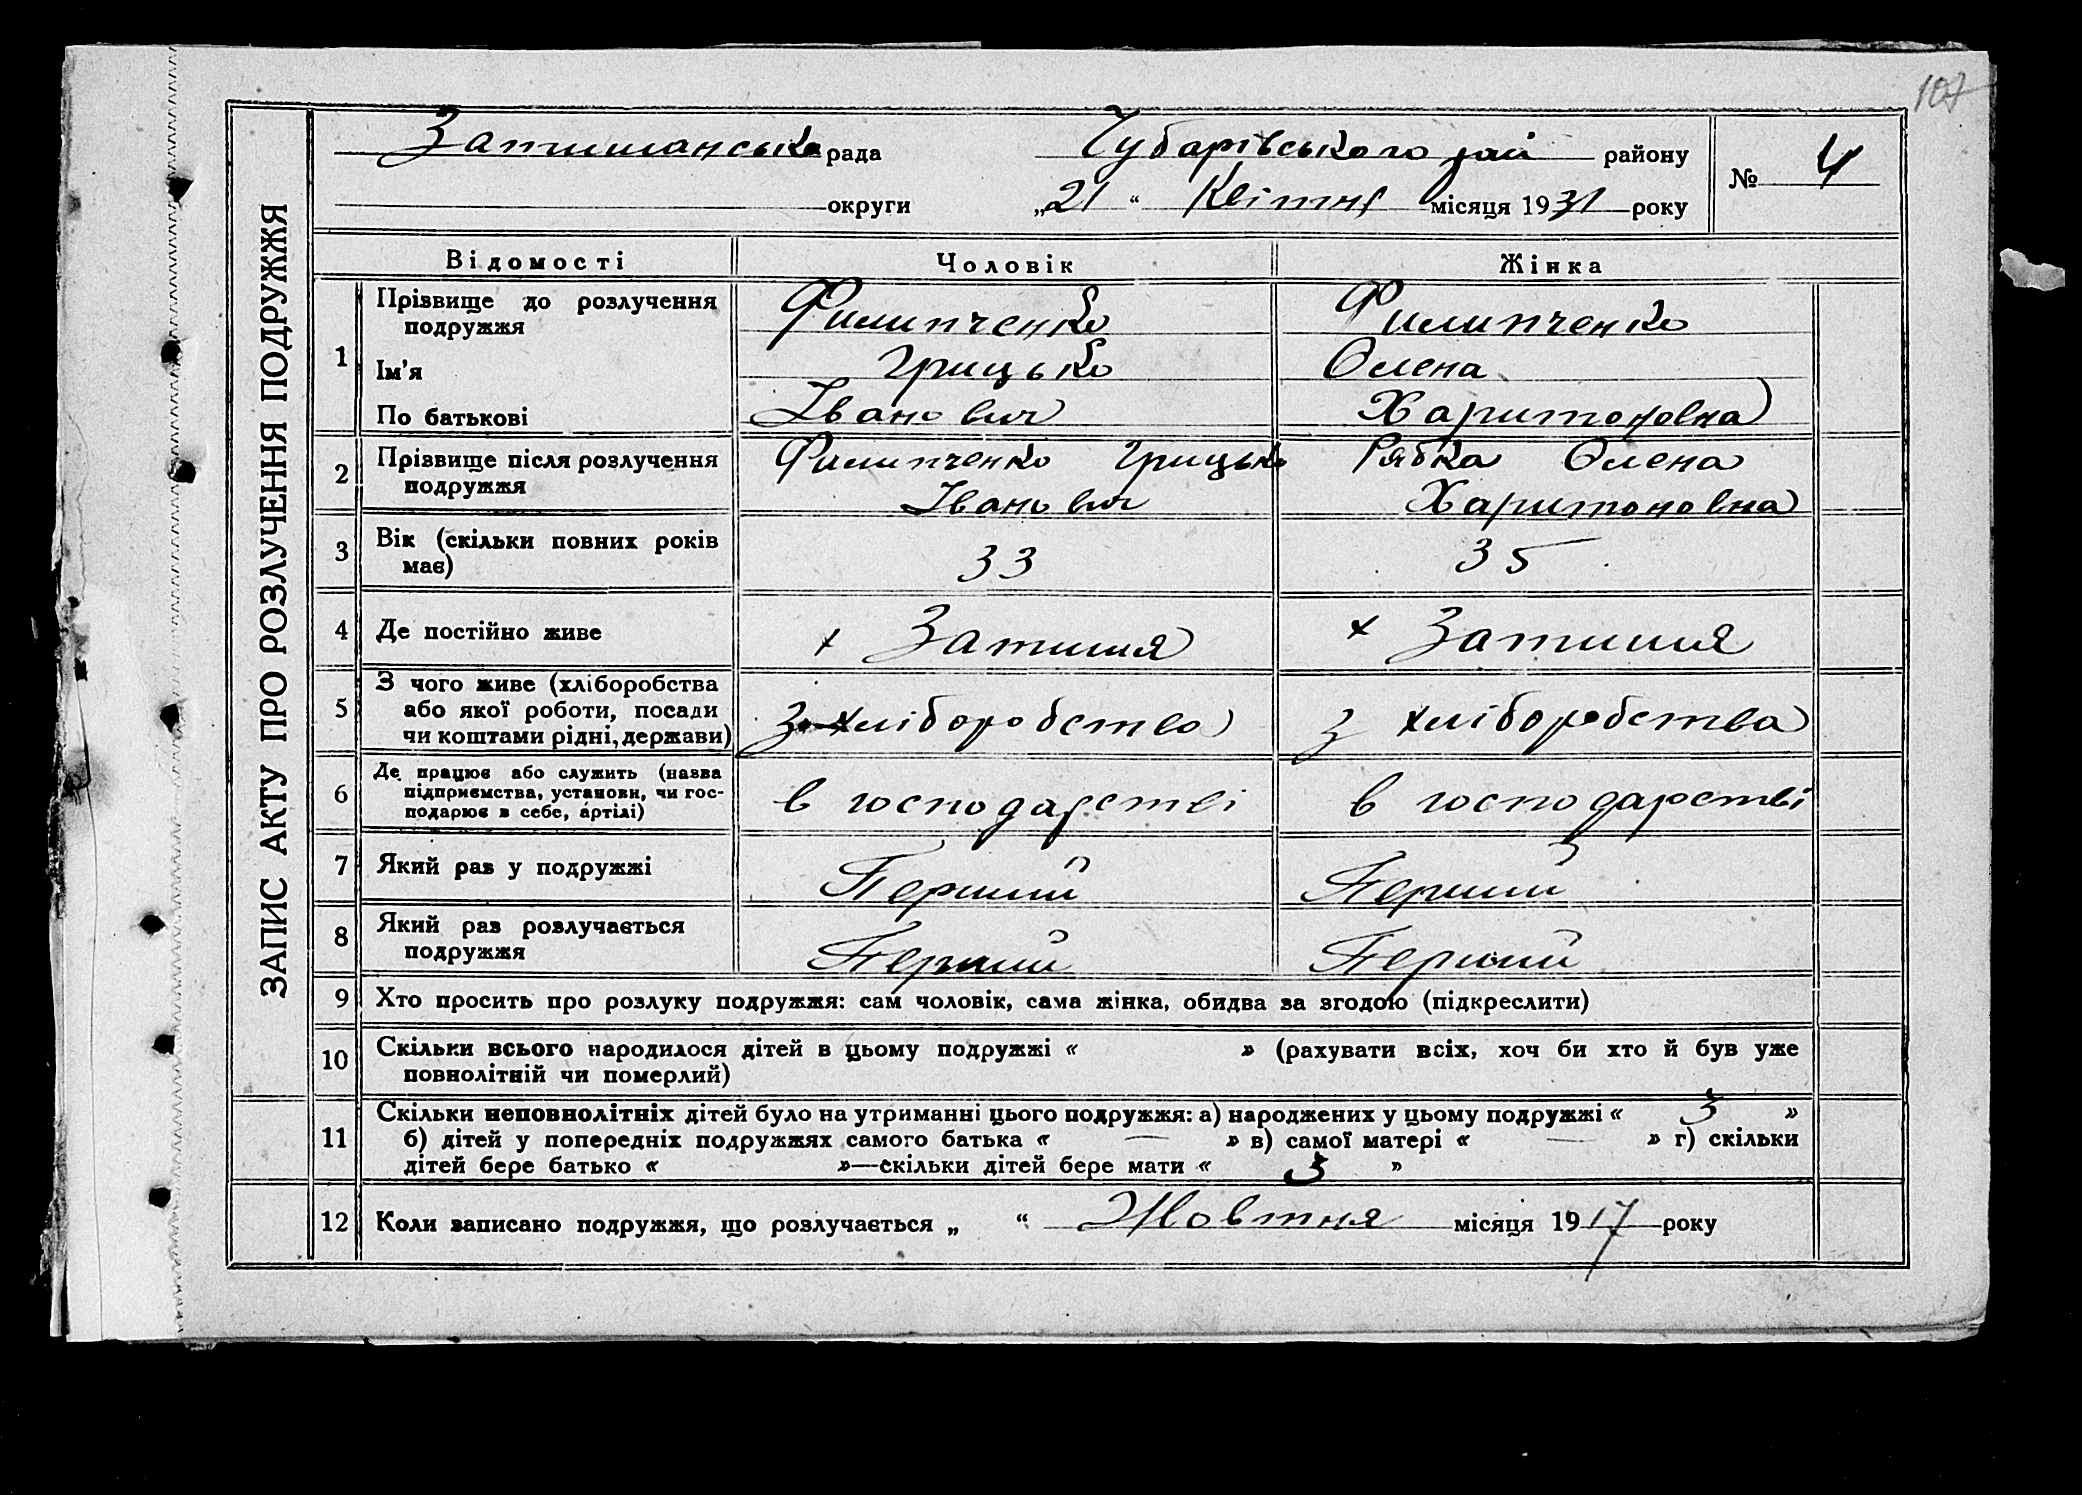 107
ЗАПИС АКТУ ПРО РОЗЛУЧЕННЯ ПОДРУЖЖЯ
Затишанська рада Чубарівського рай району
№ 4
округи „21“ Квітня місяця 1931 року
Відомості Чоловік Жінка
1 Прізвище до розлучення подружжя Филипченко Филипченко
Ім'я Грицько Олена
По батькові Іванович Харитоновна
2 Прізвище після розлучення Филипченко Грицько Рябка Олена
подружжя Іванович Харитоновна
3 Вік (скільки повних років
має) 33 35
4 Де постійно живе х Затишшя х Затишшя
5 З чого живе (хліборобства
або якої роботи, посади
чи коштами рідні, держави) З хліборобства з хліборобства
6 Де працює або служить (назва
підприємства, установи, чи гос-
подарює в себе, артілі) в господарстві в господарстві
7 Який раз у подружжі Перший Перший
8 Який раз розлучається
подружжя Перший Перший
9 Хто просить про розлуку подружжя: сам чоловік, сама жінка, обидва за згодою (підкреслити)
10 Скільки всього народилося дітей в цьому подружжі « » (рахувати всіх, хоч би хто й був уже
повнолітній чи померлий)
11 Скільки неповнолітніх дітей було на утриманні цього подружжя: а) народжених у цьому подружжі « 3 »
б) дітей у попередніх подружжях самого батька « — » в) самої матері « — » г) скільки
дітей бере батько « »—скільки дітей бере мати « 3 »
12 Коли записано подружжя, що розлучається „ “ Жовтня місяця 1917 року